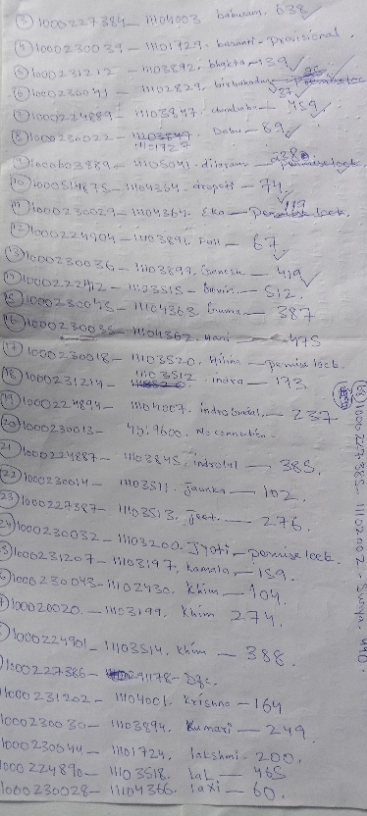 ③ 1000227384 - 11104003 baburam. 638
④ 1000230039 - 11101729. basanti - provisional.
⑤ 1000231212 - 1103892. bhakta - 139 ✓
⑥ 1000230041 - 11102829. birbahadur - 37
⑦ 1000224889 - 11103847. - 459 ✓
⑧ 1000230022 - 11101727 Dabu - 89 ✓
⑨ 1000603889 - 11105041 - dilaram - 238
⑩ 1000514875 - 11104364. dropati - 74.
⑪ 1000230029 - 11104364. Eka - 119
⑫ 1000224904 - 11103895 - 67 ✓
⑬ 1000230036 - 11103899. Ganesh - 419 ✓
⑭ 1000222412 - 1103515 - - 512.
⑮ 1000230045 - 11104363. - 387
⑯ 1000230035 - 11104362. Hani - 475
⑰ 1000230018 - 11103520. Hima - permise lock.
⑱ 1000231214 - 11103512 . indra - 173.
⑲ 1000224894 - 11104007. - 237
⑳ 1000230013 - 4519600. No connection.
㉑ 1000224887 - 11103845. indralal - 385.
㉒ 1000230014 - 11103511. Jaunka - 102.
㉓ 1000227387 - 11103513. Jeet. - 276.
㉔ 1000230032 - 11103200. Jyoti - permise lock.
1000231207 - 11103197. Kamala - 159.
1000230043 - 11102430. Khim - 104.
100020020. - 11103199. Khim 274.
1000224901 - 11103514. Khim - 388.
1000227386 - 29178 - Dgc.
1000231202 - 11104001. Krishna - 164
1000230030 - 11103894. Kumari - 249.
1000230044 - 11101724. lakshmi - 200.
1000224890 - 11103518. Lal - 465
1000230028 - 11104366. laxi - 60.
1000227385 - 11102002 - Surya. 440.